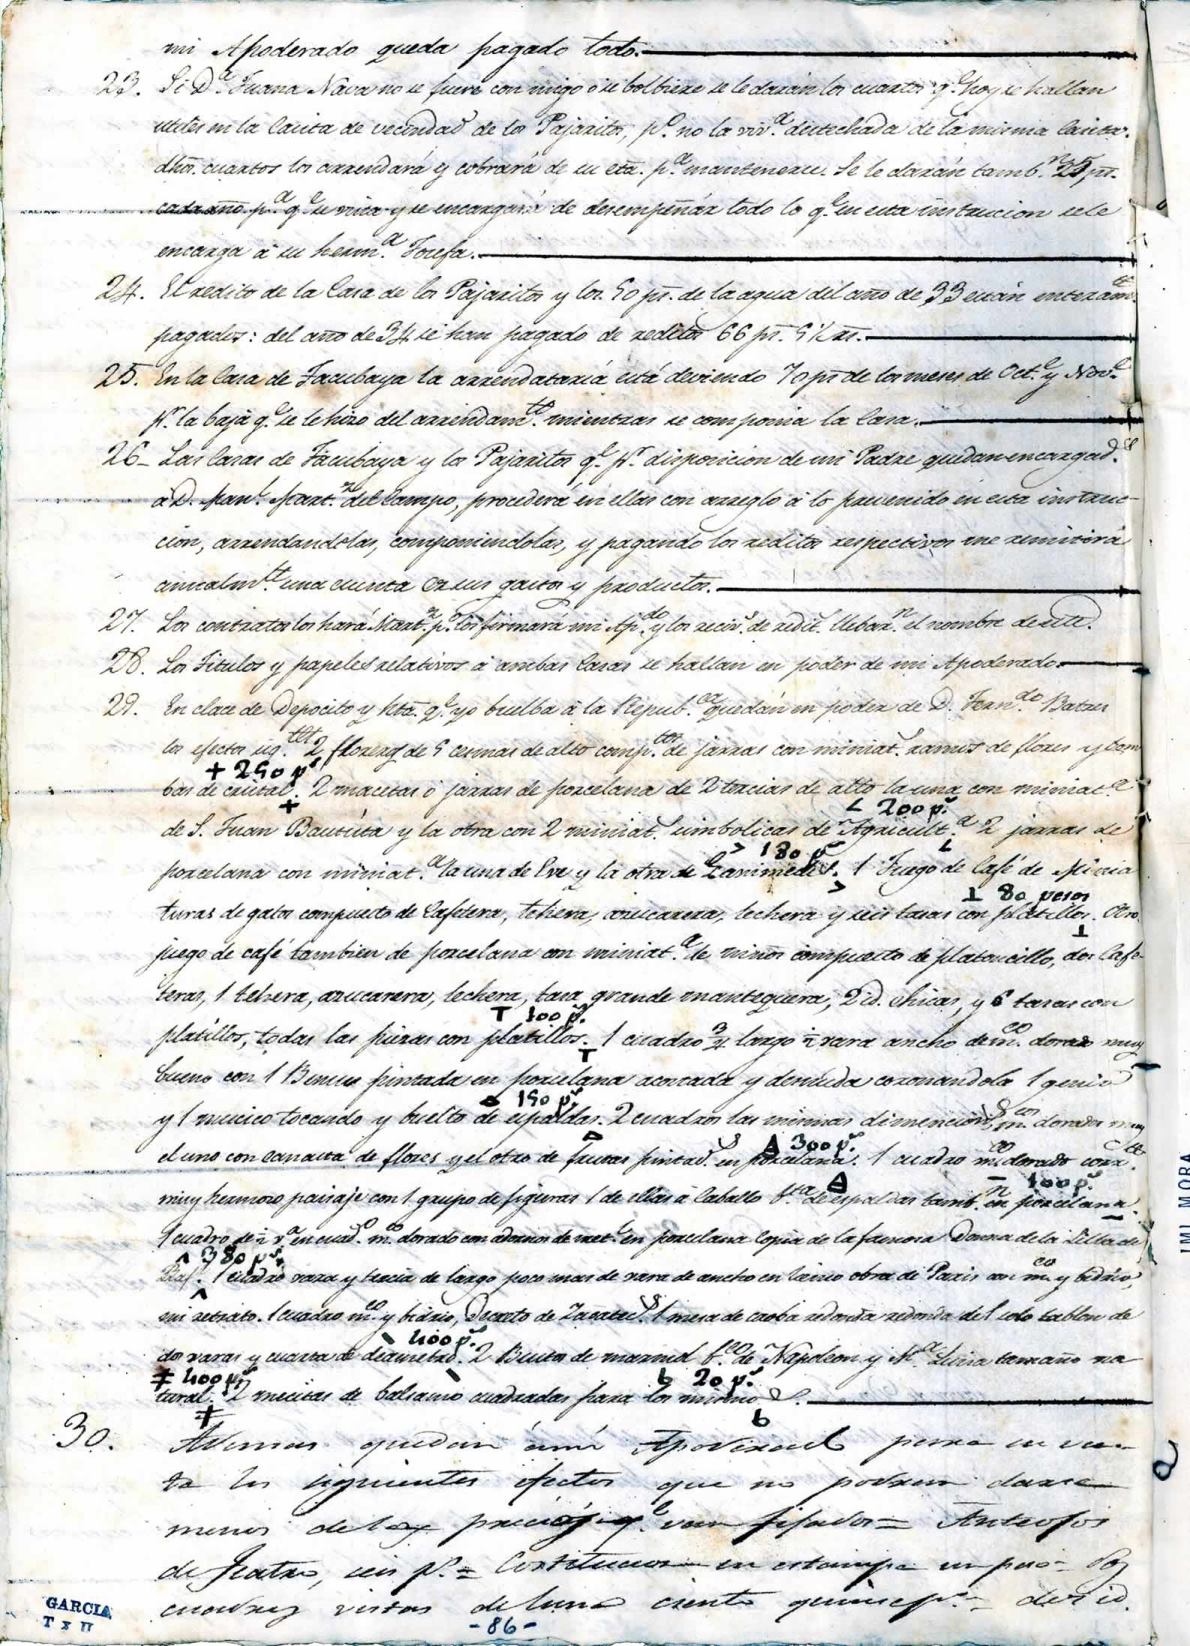 mi Apoderado queda pagado todo.
23. Si D.ª Juana Nava no se fuere con migo ó se bolbiere se le darán los cuartos q.e hoy se hallan
utiles en la Casita de vecindad de los Pajaritos, p.o no la viv.a destechada de la misma Casita.
dhos. cuartos los arrendará y cobrará de su cta. p.a mantenerse. Se le darán tamb.n 25 ps.
cada año p.a q.e se vista y se encargará de desempeñar todo lo q.e en esta instrucion se le
encarga á su herm.a Josefa.
24. El redito de la Casa de los Pajaritos y los 50 ps. de la agua del año de 33 están enteram.te
pagados: del año de 34 se han pagado de reditos 66 ps. 5½ rs.
25. En la Casa de Tacubaya la arrendataria está deviendo 70 ps de los meses de Oct.e y Nov.e
p.r la baja q.e se le hizo del arrendam.to mientras se componia la Casa.
26- Las Casas de Tacubaya y los Pajaritos q.e p.r disposicion de mi Padre quedan encargad.as
á D. Man.l Mart.z del Campo, procederá en ellas con arreglo á lo prevenido en esta instruc-
cion, arrendandolas, componiendolas, y pagando los reditos respectivos me remitirá
anualm.te una cuenta de sus gastos y productos.
27. Los contratos los hará Mart.z p.o los firmará mi Ap.do y los reciv.s de redit.s llebar.n el nombre de este.
28. Los Titulos y papeles relativos á ambas Casas se hallan en poder de mi Apoderado.
29. En clace de Deposito y hta. q.e yo buelba á la Repub.ca quedán en poder de D. Fern.do Batres
los efectos sig.tes 2 florens de 5 cesmas de alto comp.tos de jarras con miniat.s ramos de flores y bom
+ 250 p.s
bas de cristal. 2 macetas ó jarras de porcelana de 2 tercias de alto la una con miniat.a
+ < 200 p.s
de S. Juan Bautista y la otra con 2 miniat.s simbolicas de Agricult.a 2 jarras de
> 180 p.s
porcelana con miniat.a la una de Eva y la otra de Ganimedes. 1 Juego de Café de Minia
⊥ 80 pesos
turas de gatos compuesto de Cafetera, tehera, azucarera, lechera y seis tasas con platillos. Otro
juego de café tambien de porcelana con miniat.a de niños compuesto de platoncillo, dos Cafe-
teras, 1 tehera, azucarera, lechera, tasa grande mantequera, 2 id. chicas, y 6 tasas con
T 100 p.s
platillos, todas las piezas con platillos. 1 cuadro ¾ largo ½ vara ancho de m.co dorado muy
bueno con 1 Benus pintada en porcelana acostada y desnuda coronandola 1 genio
△ 150 p.s
y 1 musico tocando y buelto de espaldas. 2 cuadros las mismas dimencion.s m.cos dorados muy
△ 300 p.s
el uno con canasta de flores y el otro de frutas pintad.s en porcelana. 1 cuadro m.co dorado
- 100 p.s
muy hermoso paisaje con 1 grupo de figuras 1 de ellas á Caballo de espaldas tamb.n en porcelana.
1 cuadro de ½ v.a en cuad.o m.co dorado con adornos de en porcelana copia de la famosa Donna de la Silla de
^ 380 p.s
Raf.l 1 cuadro vara y tercia de largo poco mas de vara de ancho en lienzo obra de Paris con m.co y bidrio,
mi retrato. 1 cuadro m.co y bidrio, Decreto de Zacatec.s 1 mesa de caoba redonda redonda de 1 solo tablon de
\ 400 p.s
dos varas y cuarta de diametro. 2 Bustos de marmol de Napoleon y M.a Luisa tamaño na
‡ 400 p.s b 20 p.s
tural. 2 mecitas de balsamo cuadradas para los mismos.
‡ b
30. Ademas quedan á mi Apoderado para su ven-
ta los siguientes efectos que no podran darse
menos de los precios q.e van fijados = Anteojos
de Teatro, seis p.s = Constitucion en estampa un peso = Dos
cuadros vistas de luna ciento quince p.s = dos id.
-86-
GARCIA
T x II
IMI MORA